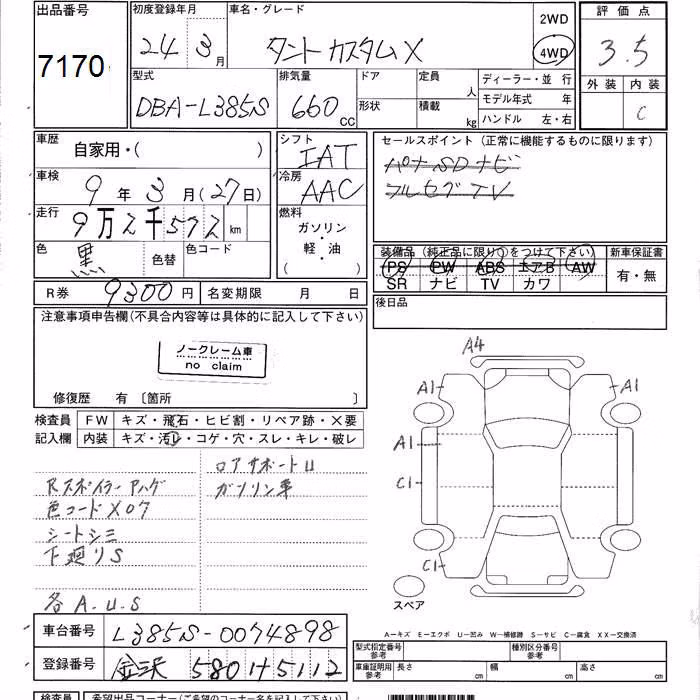 出品番号 初度登録年月 車名・グレード 2WD 評価点
7170 24 3月 タントカスタムX 4WD 3.5
型式 排気量 ドア 定員 ディーラー・並行 外装 内装
人 モデル年式 年
DBA-L385S 660CC 形状 積載 kg ハンドル 左・右 C
車歴 シフト セールスポイント (正常に機能するものに限ります)
自家用・( ) IAT パナSDナビ
車検 冷房 フルセグTV
9年3月(27日) AAC
走行 燃料
9万2千572km ガソリン・
色 黒 色替 色コード 軽・油 装備品 (純正品に限り○をつけて下さい) 新車保証書
( ) PS PW ABS エアB AW 有・無
R券 9300円 名変期限 月 日 SR ナビ TV カワ
注意事項申告欄(不具合内容等は具体的に記入して下さい) 後日品
ノークレーム車
no claim
修復歴 有 〔箇所 〕
検査員 FW キズ・飛石・ヒビ割・リペア跡・X要
記入欄 内装 キズ・汚レ・コゲ・穴・スレ・キレ・破レ
A4
A1 A1
A1
C1
C1
スペア
ロアサポートU
Rスポイラーアハゲ ガソリン車
色コードX07
シートシミ
下廻りS
各A.U.S
A-キズ E-エクボ U-凹み W-補修跡 S-サビ C-腐食 XX-交換済
車台番号 L385S-0074898
型式指定番号 参考 種別区分番号 参考
登録番号 金沢 580  5112
車庫証明用 参考 長さ cm 幅 cm 高さ cm
検査員 希望出品コーナー(ご希望のコーナー名を記入して下さい)